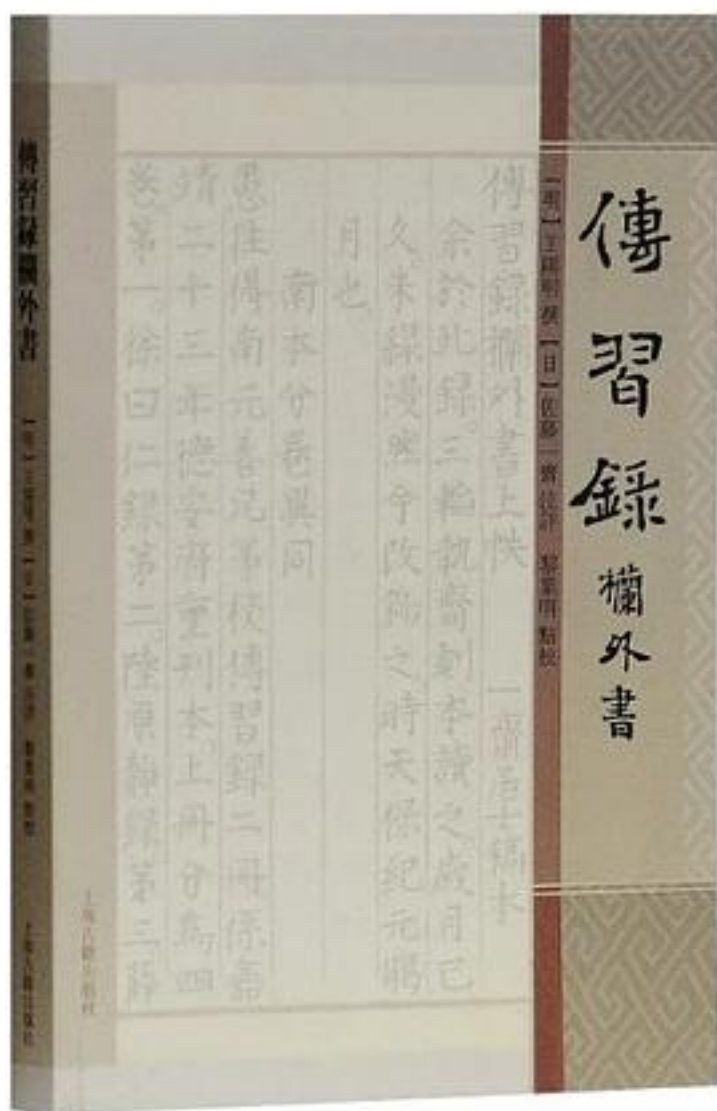 傳習録欄外書
【明】王陽明 撰 【日】佐藤一齋 注評 黎業明 點校
傳習録欄外書上帙 一齋居士稿本
余於此録三輪執齋刻本讀之歲月已
久朱緑漫然今改
之時天保紀元
月也
南本分卷異同
愚往得南元善兄弟校傳習録二冊係嘉
靖二十三年德安府重刊本上冊分爲四
卷第一徐曰仁録第二陸原静録第三薛
上海古籍出版社
傳習録欄外書
【明】王陽明 撰 【日】佐藤一齋 注評 黎業明 點校
上海古籍出版社